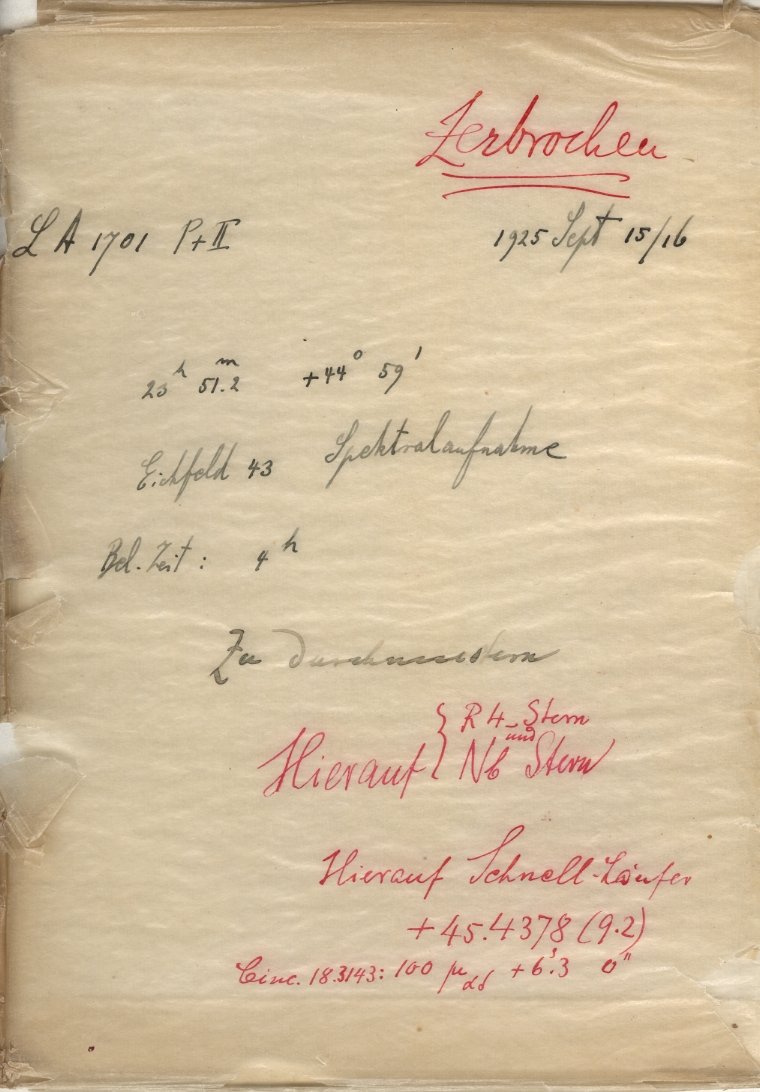 Zerbrochen
LA 1701 P+II 1925 Sept 15/16
23h 51.m2 +44° 59'
Eichfeld 43 Spektralaufnahme
Bel. Zeit: 4h
Zu durchmustern
Hierauf { R4-Stern
und
Nb Stern
Hierauf Schnell-Läufer
+45.4378 (9.2)
Cinc. 18.3143: 100 μ +6.3 0"